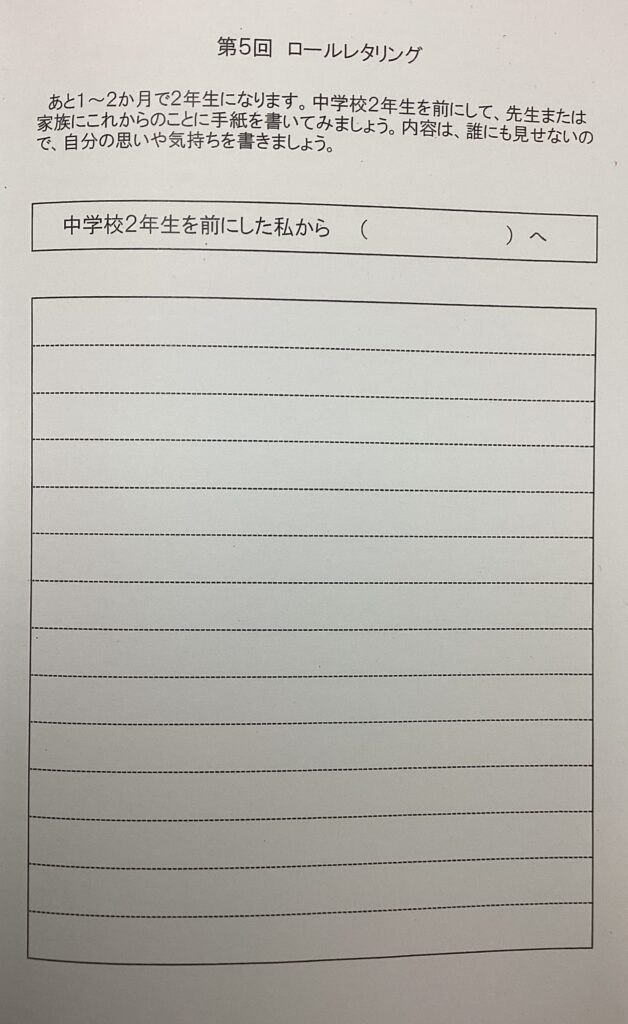 第5回 ロールレタリング
あと1～2か月で2年生になります。中学校2年生を前にして、先生または
家族にこれからのことに手紙を書いてみましょう。内容は、誰にも見せないの
で、自分の思いや気持ちを書きましょう。
中学校2年生を前にした私から （ ） へ